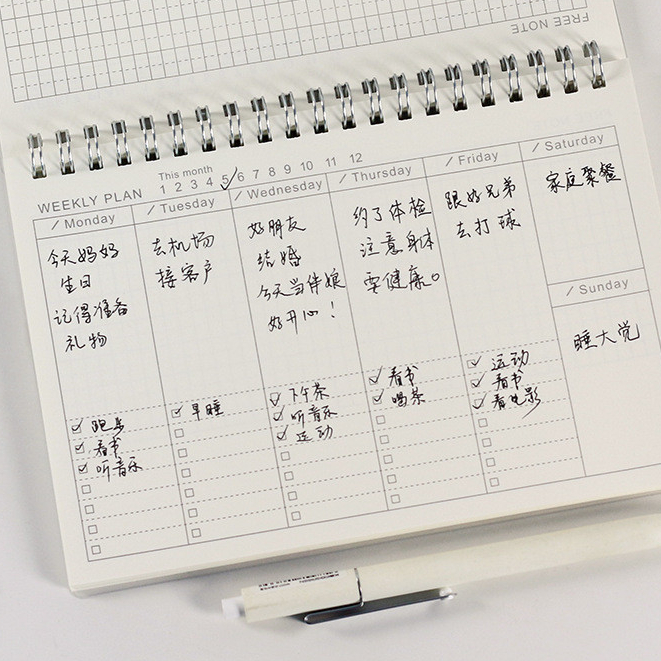 FREE NOTE
WEEKLY PLAN
This month
1 2 3 4 5 6 7 8 9 10 11 12
/ Monday
今天妈妈
生日
记得准备
礼物
跑步
看书
听音乐
/ Tuesday
去机场
接客户
早睡
/ Wednesday
好朋友
结婚
今天当伴娘
好开心！
下午茶
听音乐
运动
/ Thursday
约了体检
注意身体
要健康。
看书
喝茶
/ Friday
跟好兄弟
去打球
运动
看书
看电影
/ Saturday
家庭聚餐
/ Sunday
睡大觉